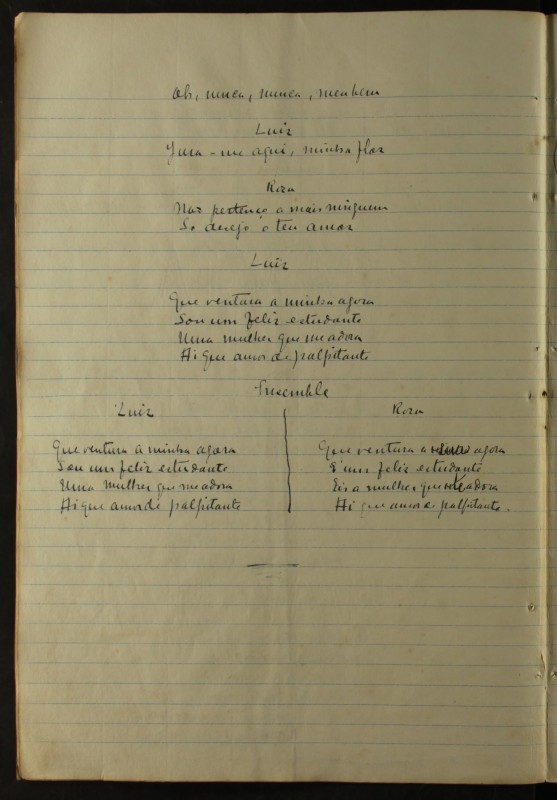 Oh, nunca, nunca, meu bem
Luiz
Jura-me aqui, minha flor
Roza
Não pertenço a mais ninguem
So desejo o teu amor
Luiz
Que ventura a minha agora
Sou um feliz estudante
Uma mulher que me adora
Ai que amor de palpitante
Ensemble
Luiz
Que ventura a minha agora
Sou um feliz estudante
Uma mulher que me adora
Ai que amor de palpitante
Roza
Que ventura a sua agora
E' um feliz estudante
Eis a mulher que adora
Ai que amor de palpitante.